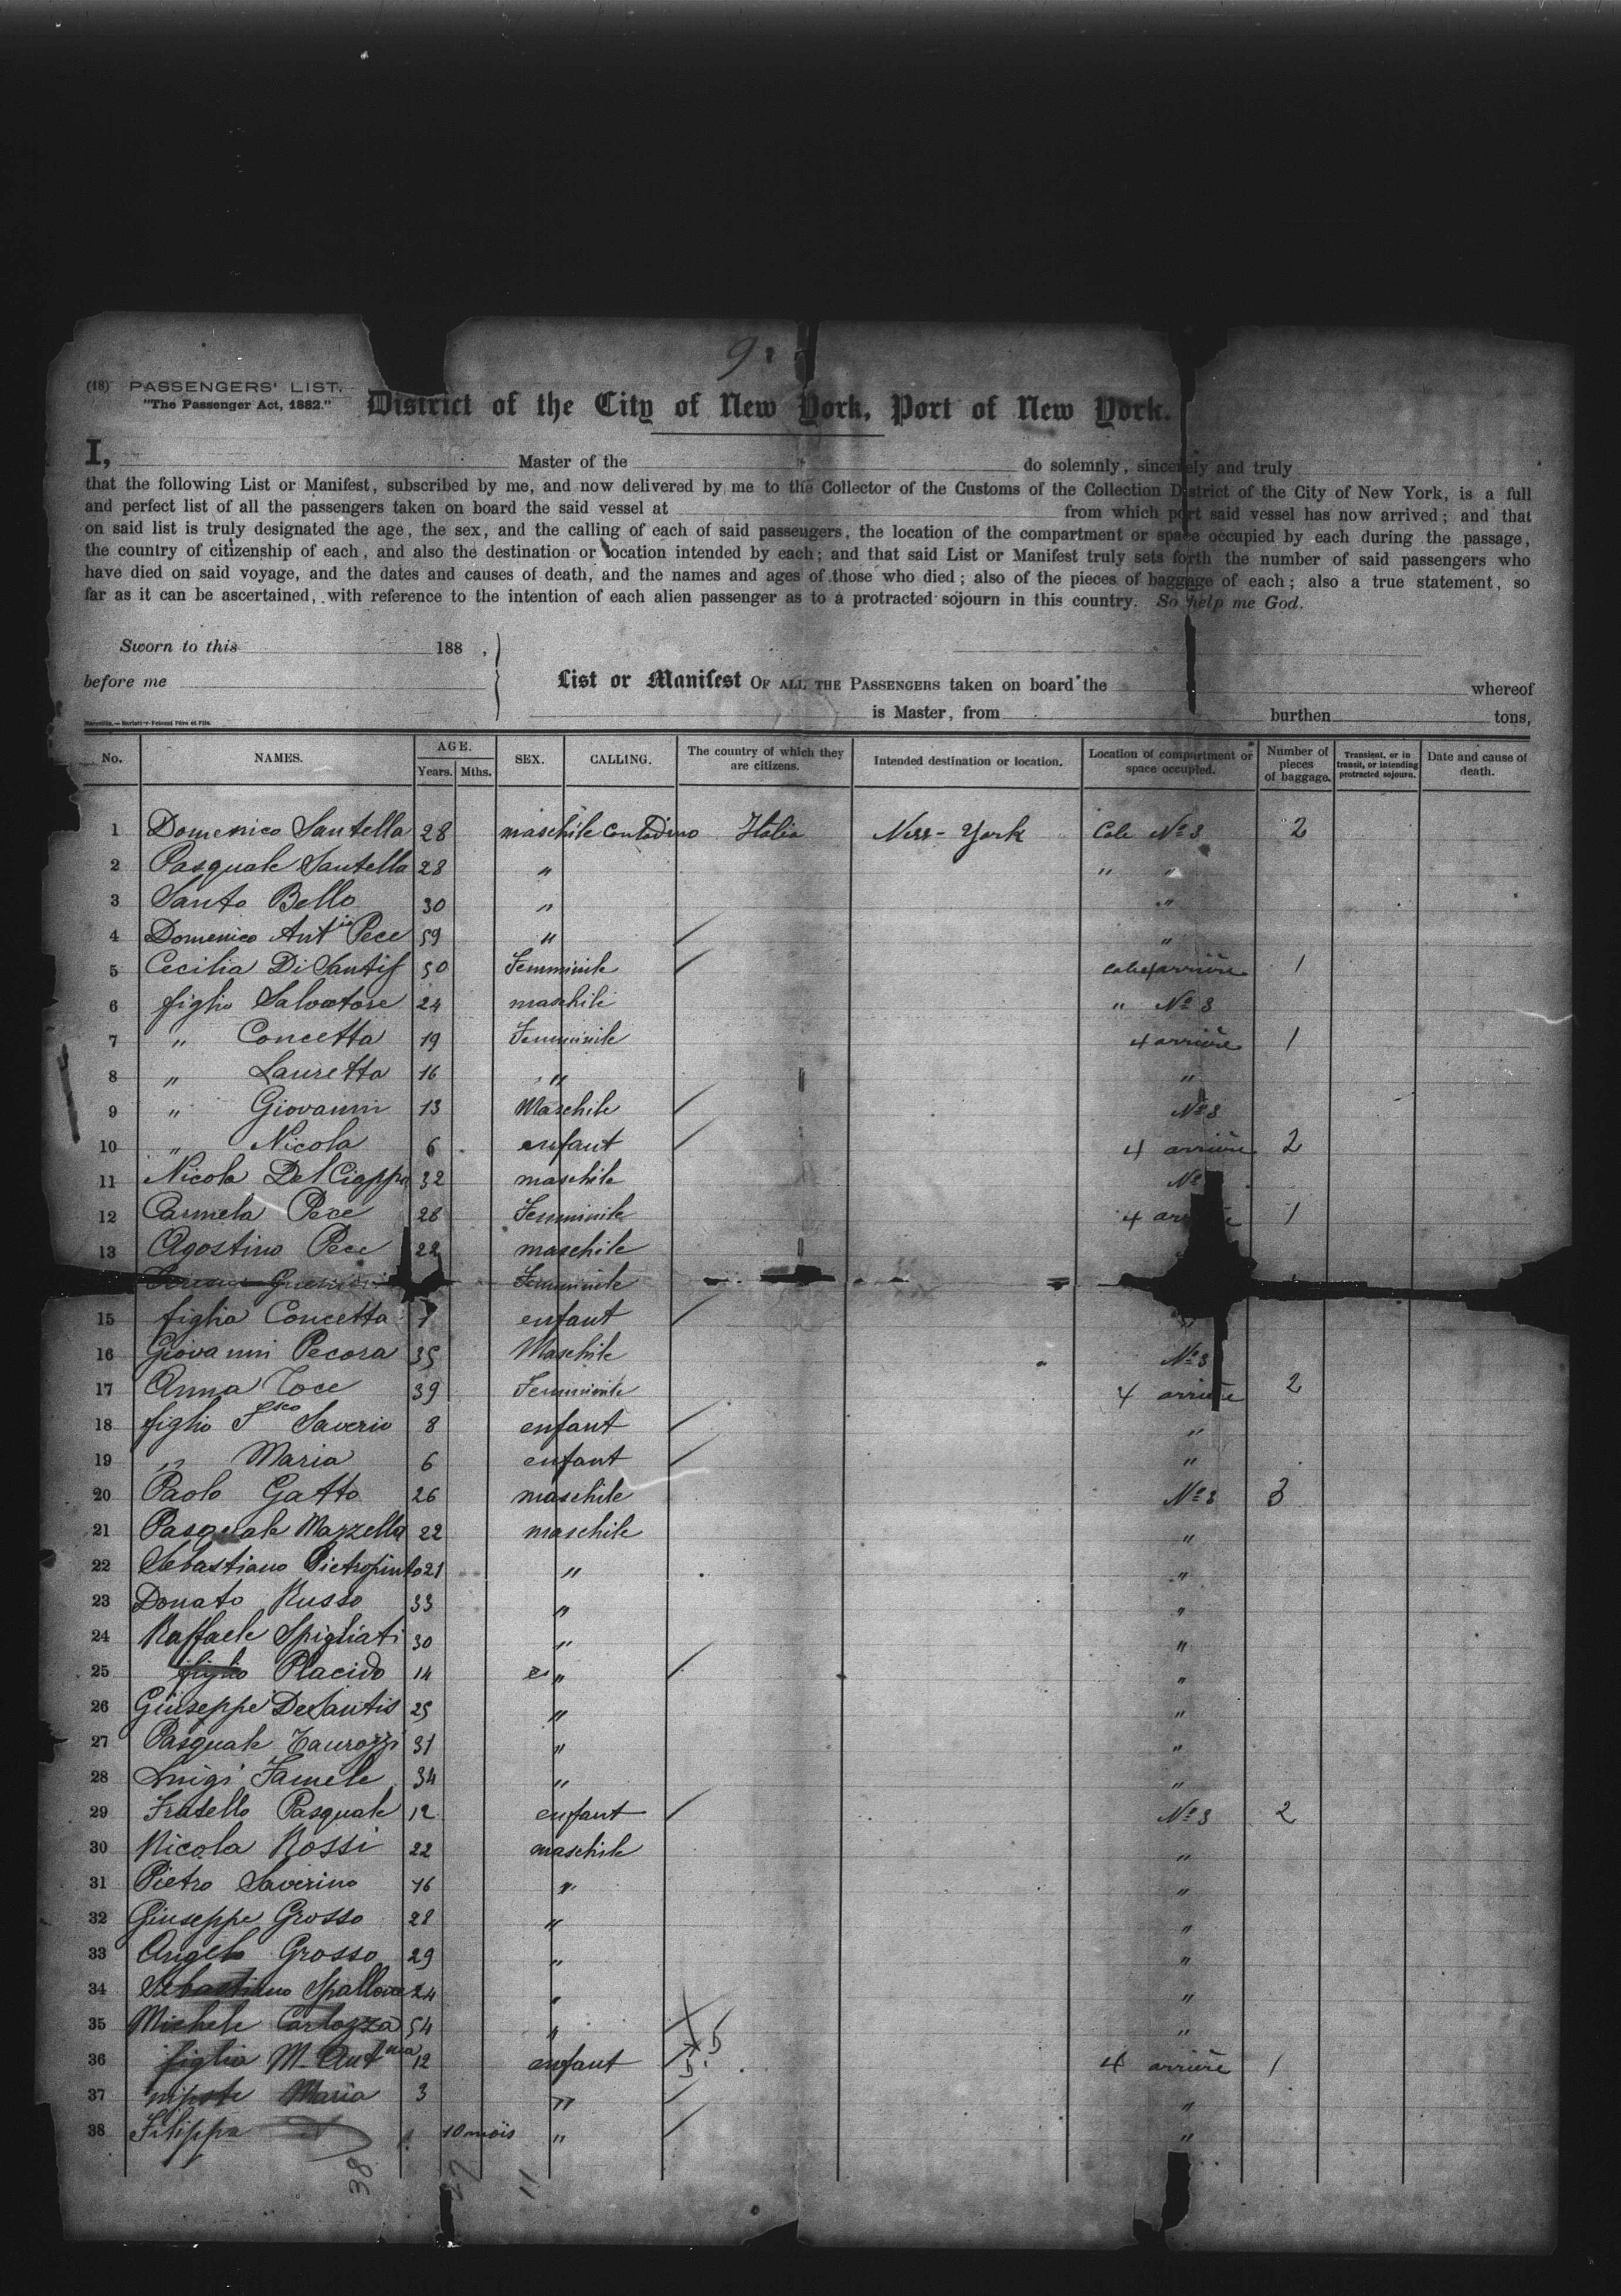 9
(18) PASSENGERS' LIST.
"The Passenger Act, 1882."
District of the City of New York, Port of New York.
I, Master of the do solemnly, sincerely and truly
that the following List or Manifest, subscribed by me, and now delivered by me to the Collector of the Customs of the Collection District of the City of New York, is a full
and perfect list of all the passengers taken on board the said vessel at from which port said vessel has now arrived; and that
on said list is truly designated the age, the sex, and the calling of each of said passengers, the location of the compartment or space occupied by each during the passage,
the country of citizenship of each, and also the destination or location intended by each; and that said List or Manifest truly sets forth the number of said passengers who
have died on said voyage, and the dates and causes of death, and the names and ages of those who died; also of the pieces of baggage of each; also a true statement, so
far as it can be ascertained, with reference to the intention of each alien passenger as to a protracted sojourn in this country. So help me God.
Sworn to this 188 ,
before me
List or Manifest OF ALL THE PASSENGERS taken on board the whereof
is Master, from burthen tons,
No. NAMES. AGE. Years. Mths. SEX. CALLING. The country of which they are citizens. Intended destination or location. Location of compartment or space occupied. Number of pieces of baggage. Transient, or in transit, or intending protracted sojourn. Date and cause of death.
1 Domenico Santella 28 maschile Contadino Italia New-York Cale Nº 3 2
2 Pasquale Santella 28 " " "
3 Santo Bello 30 " "
4 Domenico Antio Pece 59 " "
5 Cecilia Di Santis 50 Femminile cale 4 arrière 1
6 figlio Salvatore 24 maschile " Nº 3
7 " Concetta 19 Femminile 4 arrière 1
8 " Lauretta 16 " "
9 " Giovanni 13 Maschile Nº 3
10 " Nicola 6 enfant 4 arrière 2
11 Nicola Del Ciappo 32 maschile Nº
12 Carmela Pece 28 Femminile 4 arrière 1
13 Agostino Pece 22 maschile
Femminile
15 figlia Concetta 7 enfant "
16 Giovanni Pecora 35 Maschile Nº 3
17 Anna Toce 39 Femminile 4 arrière 2
18 figlio Fsco Saverio 8 enfant "
19 " Maria 6 enfant "
20 Paolo Gatto 26 maschile Nº 3 3
21 Pasquale Mazzella 22 maschile "
22 Sebastiano Pietropinto 21 " "
23 Donato Russo 33 " "
24 Raffaele Spigliati 30 " "
25 figlio Placido 14 " "
26 Giuseppe DeSantis 25 " "
27 Pasquale Taurozzi 31 " "
28 Luigi Famele 34 " "
29 Fratello Pasquale 12 enfant Nº 3 2
30 Nicola Rossi 22 maschile "
31 Pietro Saverino 16 " "
32 Giuseppe Grosso 28 " "
33 Angelo Grosso 29 " "
34 Sebastiano Spallone 24 " "
35 Michele Carlozza 54 " "
36 figlia M. Antnia 12 enfant 4 arrière 1
37 nipote Maria 3 " "
38 Filippa 10 mois " "
38 27 11